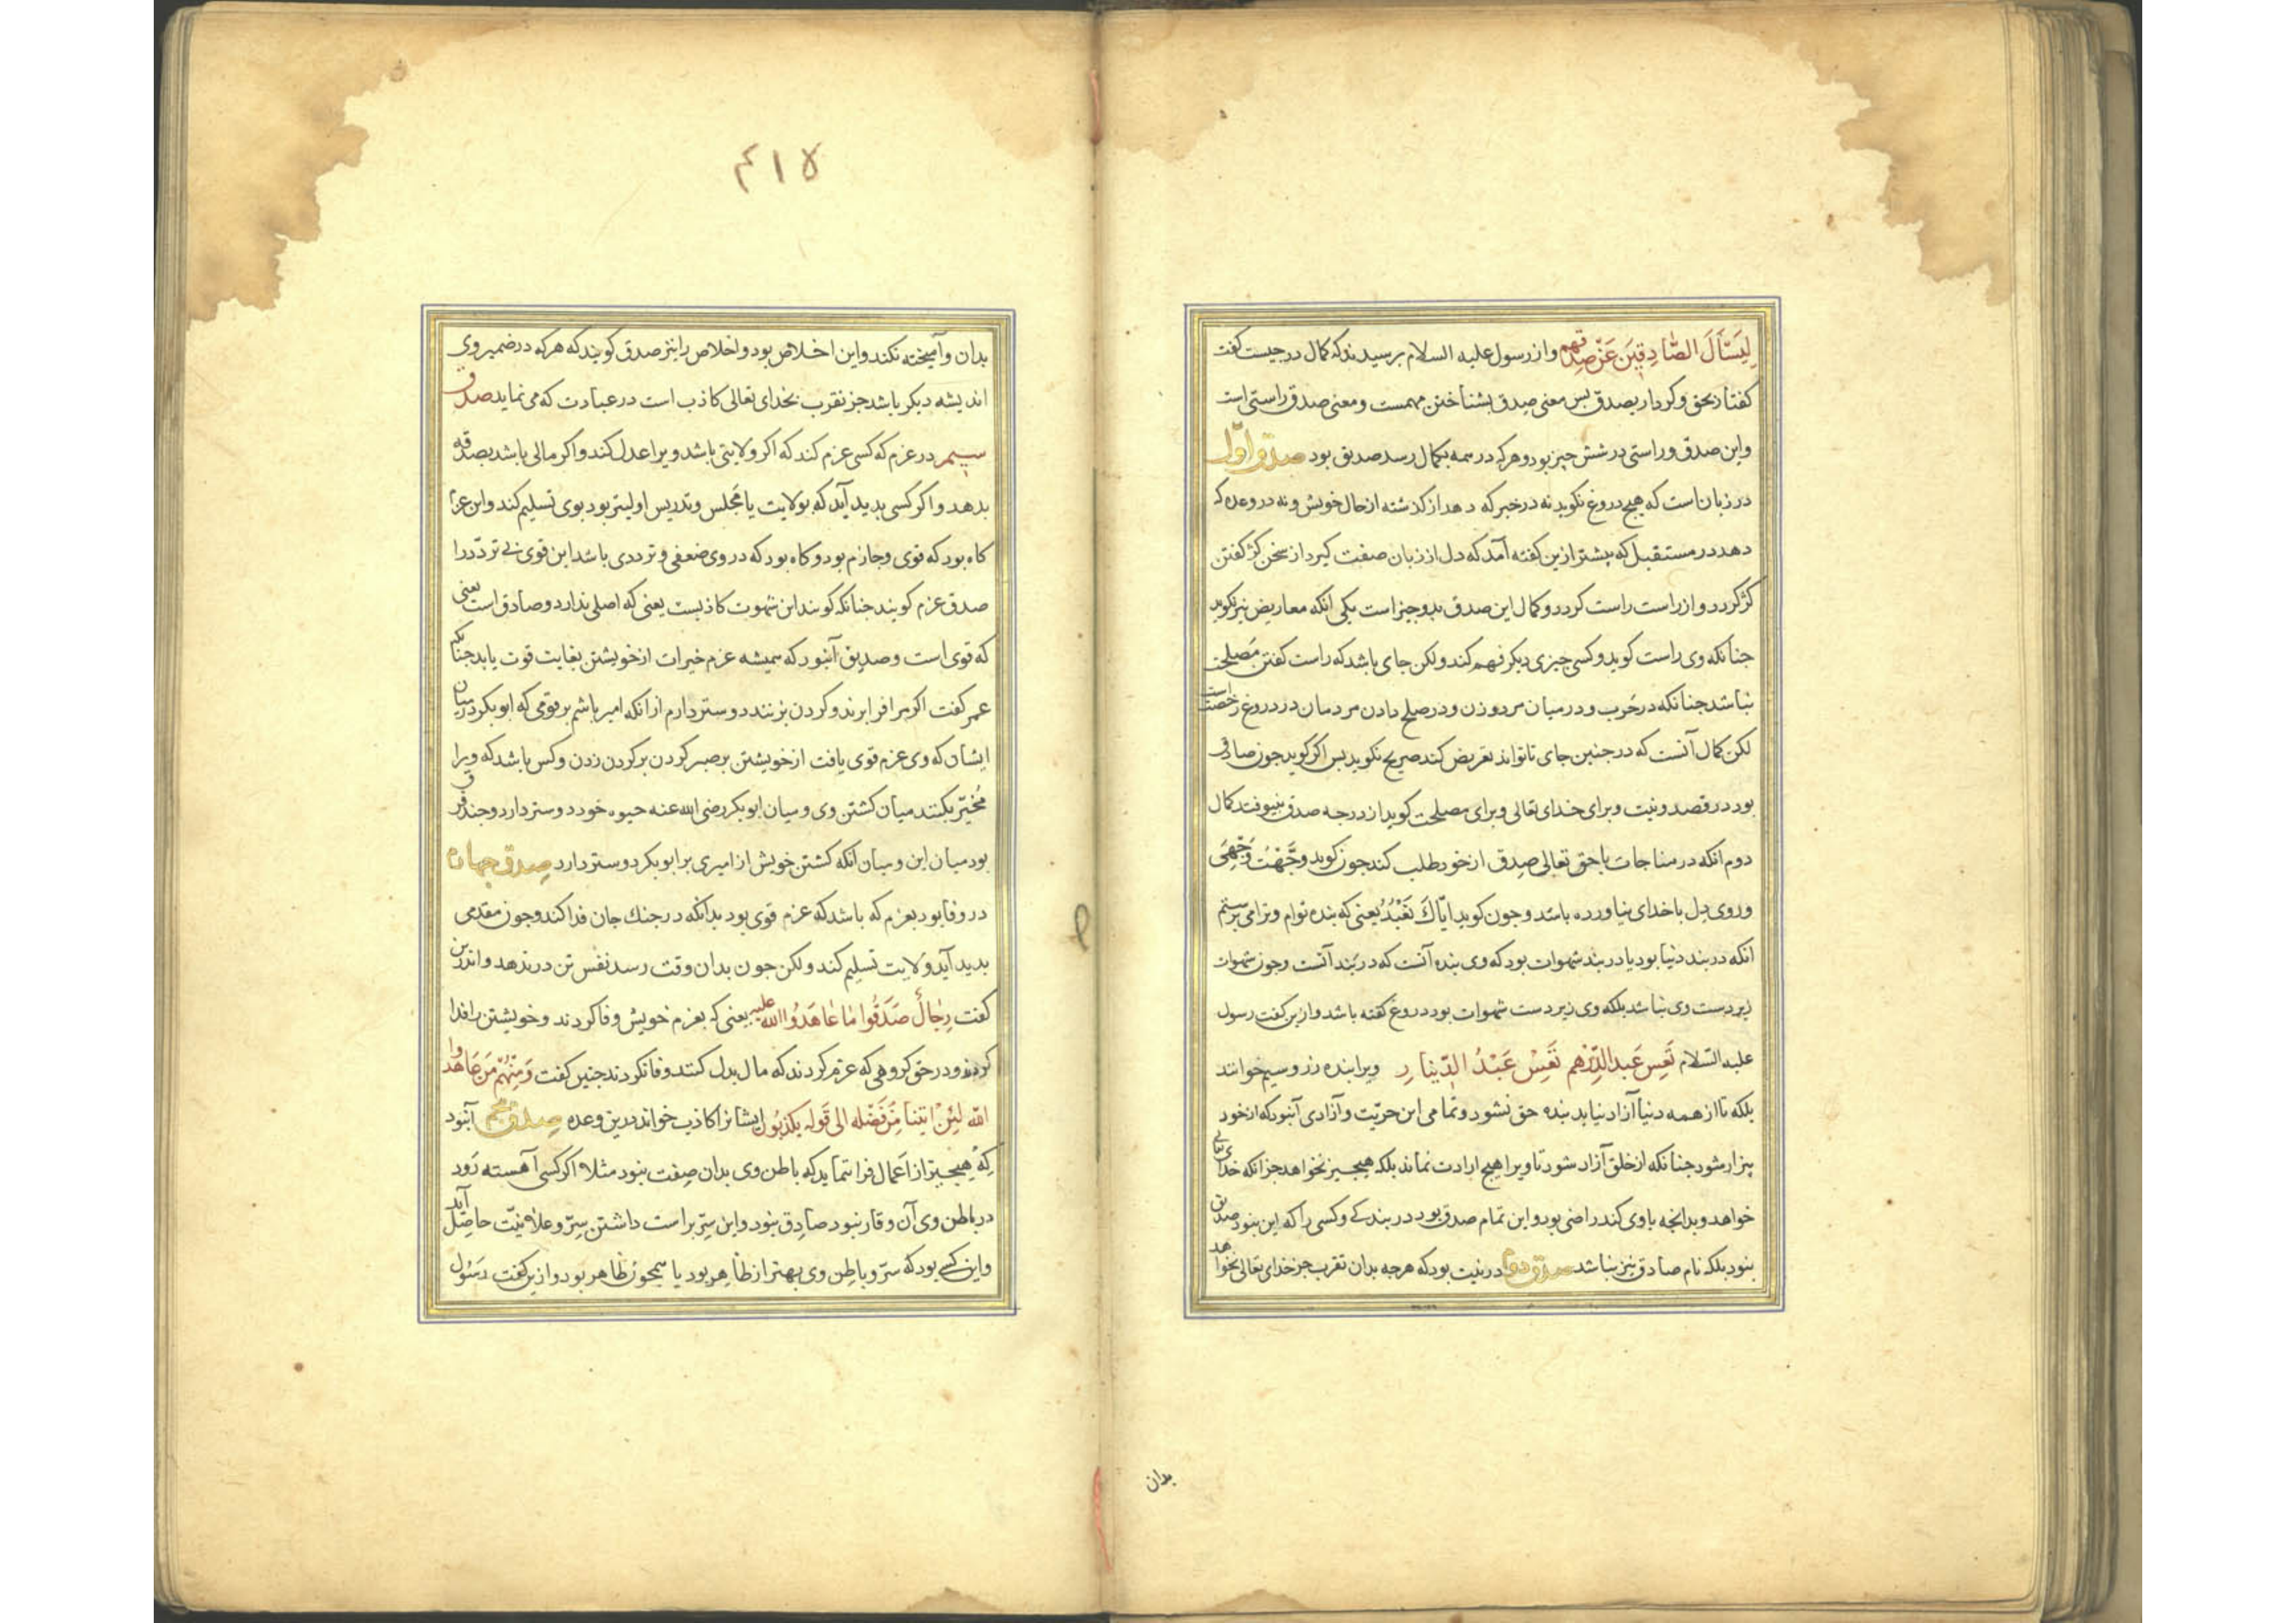 لِيَسْأَلَ الصَّادِقِينَ عَنْ صِدْقِهِم واز رسول عليه السلام برسيدند که کمال درجیست کفت
کفتار بحق وکردار بصدق بس معنی صدق بشناختن مهمست ومعنی صدق راستی است
واین صدق وراستی در شش چیز بود وهرکه در همه بکمال رسد صدیق بود صدق اوّل
در زبان است که هیچ دروغ نکوید نه در خبر که دهد از کذشته از حال خویش ونه در وعده که
دهد در مستقبل که بیشتر ازین کفته آمد که دل از زبان صفت کیرد از سخن کژ کفتن
کژ کردد واز راست راست کردد وکمال این صدق بدو چیز است یکی انکه معاریض نیز نکوید
جنانکه وی راست کوید وکسی چیزی دیکر فهم کند ولکن جای باشد که راست کفتن مصلحت
نباشد جنانکه در حَرب ودر میان مرد وزن ودر صلح دادن مردمان در دروغ رخصت است
لکن کمال آنست که در جنین جای تا تواند تعریض کند صریح نکوید بس اکر کوید جون صادق
بود در قصد ونیت وبرای خدای تعالی وبرای مصلحت کوید از درجه صدق نیوفتد کمال
دوم انکه در مناجات با حق تعالی صِدق از خود طلب کند جون کوید وَجَّهْتُ وَجْهِیَ
وروی دل با خدای نیاورده باشد وجون کوید ایّاكَ نَعْبُدُ یعنی که بنده توام وترا می پرستم
انکه در بند دنیا بود یا در بند شهوات بود که وی بنده آنست که در بَند آنست وجون شهوات
زیر دست وی نباشد بلکه وی زیر دست شهوات بود دروغ کفته باشد وازین کفت رسول
علیه السّلام تَعِسَ عَبدالدِّرْهم تَعِسَ عَبْدُ الدِّینار ویرا بنده زر وسیم خوانند
بلکه تا از همه دنیا آزاد نیاید بنده حق نشود وتمامی این حریّت وآزادی آنبود که از خود
بیزار شود جنانکه از خلق آزاد شود تا ویرا هیچ ارادت نماند بلکه هیجیز نخواهد جز انکه خدای تعالی
خواهد وبدانجه با وی کند راضی بود واین تمام صدق بود در بندکی وکسی را که این نبود صدیق
نبود بلکه نام صادق نیز نباشد صدق دوم در نیت بود که هرجه بدان تقرب جز خدای تعالی نخواهد
بدان
۴۱۷
بدان وآمیخته نکند واین اخلاص بود واخلاص را نیز صدق کویند که هرکه در ضمیر وی
اندیشه دیکر باشد جز تقرب بخدای تعالی کاذب است در عبادت که می نماید صدق
سیم در عزم که کسی عزم کند که اکر ولایتی باشد ویرا عدل کند واکر مالی باشد بصدقه
بدهد واکر کسی بدید آید که بولایت یا مجلس وتدریس اولیتر بود بوی تسلیم کند واین عزم
کاه بود که قوی وجازم بود وکاه بود که در وی ضعفی وترددی باشد این قوی بی تردّد را
صدق عزم کویند جنانکه کویند این شهوت کاذبست یعنی که اصلی ندارد وصادق است یعنی
که قوی است وصدیق آنبود که همیشه عزم خیرات از خویشتن بغایت قوت یابد جنانکه
عمر کفت اکر مرا فرا برند وکردن بزنند دوستر دارم از انکه امیر باشم بر قومی که ابوبکر در میان
ایشان که وی عزم قوی یافت از خویشتن بر صبر کردن بر کردن زدن وکس باشد که ویرا
مُخیّر بکنند میان کشتن وی ومیان ابوبکر رضی الله عنه حیوه خود دوستر دارد وجند فرق
بود میان این ومیان آنکه کشتن خویش از امیری بر ابوبکر دوستر دارد صدق جهارم
در وفا بود بعزم که باشد که عزم قوی بود بدانکه در جنك جان فدا کند وجون مقدمی
بدید آید ولایت تسلیم کند ولکن جون بدان وقت رسد نفس تن در ندهد واندرین
کفت رِجالٌ صَدَقُوا مٰا عٰاهَدُوا الله علیه یعنی که بعزم خویش وفا کردند وخویشتن را فدا
کردند ودر حق کروهی که عزم کردند که مال بدل کنند وفا نکردند جنین کفت وَمِنْهُمْ مَن عَاهَدوا
الله لَئِنْ اٰتینا مِنْ فَضْله الی قَوله یکذبُون ایشانرا کاذب خواند درین وعده صدق پنجم آنبود
که هیجیز از اعمال فرا ننماید که باطن وی بدان صِفت نبود مثلا اکر کسی آهسته رَود
در باطن وی آن وقار نبود صادِق نبود واین سِرّ براست داشتن سِرّ وعلانیّت حاصل آید
واین کسی بود که سرّ وباطن وی بهتر از ظاهر بود یا همجون ظاهر بود وازین کفت رسُول